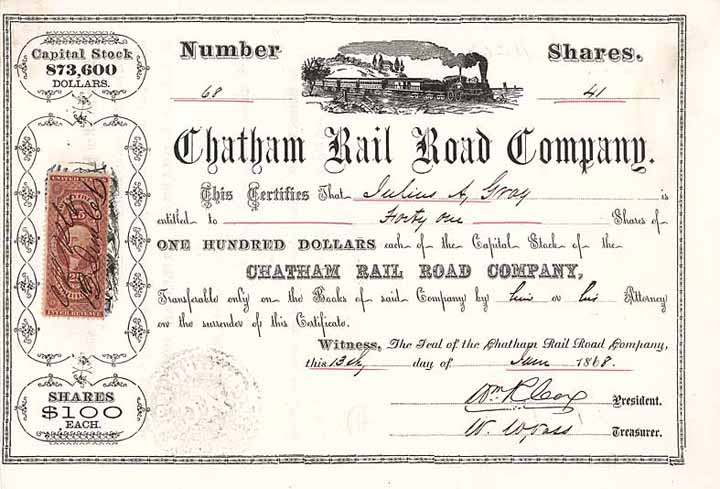 Capital Stock
$73,600
DOLLARS.
Number
Shares.
68
41
Chatham Rail Road Company.
This Certifies That Julius A. Gray is
entitled to Forty one Shares of
ONE HUNDRED DOLLARS each of the Capital Stock of the
CHATHAM RAIL ROAD COMPANY,
Transferable only on the Books of said Company by him or his Attorney
on the surrender of this Certificate.
Witness, The Seal of the Chatham Rail Road Company,
this 13th day of June 1868.
Wm R. Cox President.
W. W. Vass Treasurer.
SHARES
$100
EACH.
UNITED STATES
INTER. REVENUE